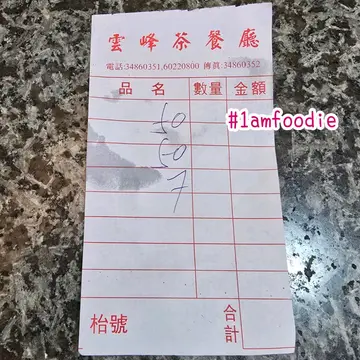 雲峰茶餐廳
電話:34860351,60220800 傳真:34860352
品名 數量 金額
#1amfoodie
50
50
7
枱號 合計